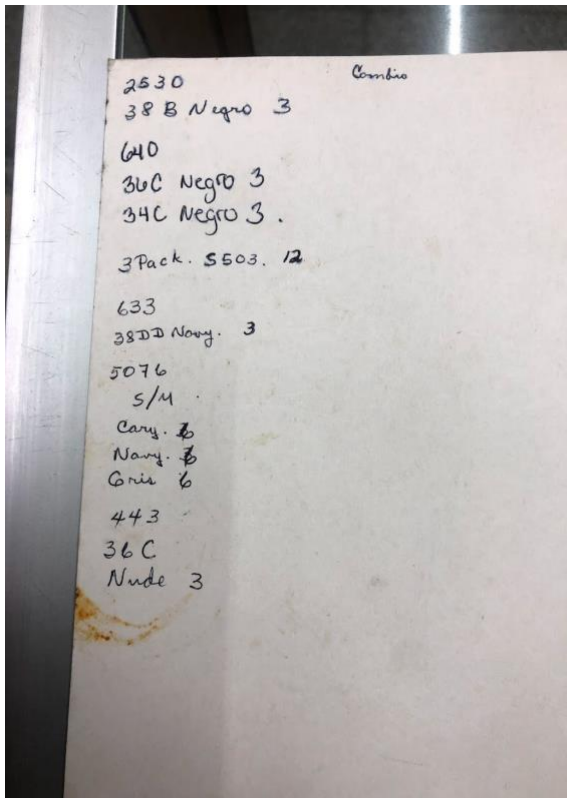 Cambio
2530
38 B Negro 3
640
36C Negro 3
34C Negro 3.
3 Pack. S503. 12
633
38DD Navy. 3
5076
S/M
Cary. 6
Navy. 6
Gris 6
443
36 C
Nude 3